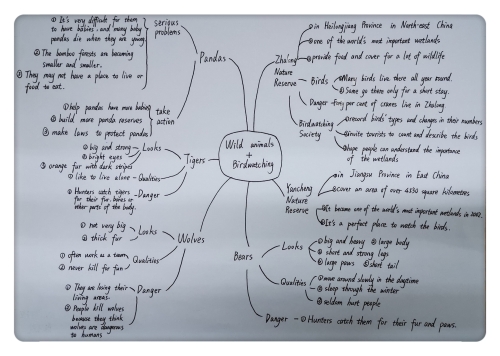 ① It's very difficult for them
to have babies. and many baby
pandas die when they are young
② The bamboo forests are becoming
smaller and smaller.
③ They may not have a place to live or
food to eat.
serious
problems
Pandas
① help pandas have more babies
② build more panda reserves
③ make laws to protect pandas
take
action
① big and strong
② bright eyes
③ orange fur with dark stripes
Looks
① like to live alone
Qualities
① Hunters catch tigers
for their fur. bones or
other parts of the body.
Danger
Tigers
① not very big
② thick fur
Looks
① often work as a team
② never kill for fun
Qualities
① They are losing their
living areas.
② People kill wolves
because they think
wolves are dangerous
to humans
Danger
Wolves
Wild animals
+
Birdwatching
Zhalong
Nature
Reserve
① in Heilongjiang Province in North-east China
② one of the world's most important wetlands
③ provide food and cover for a lot of wildlife
Birds
① Many birds live there all year round.
② Some go there only for a short stay.
Danger
forty per cent of cranes live in Zhalong
Birdwatching
Society
① record birds' types and changes in their numbers
② invite tourists to count and describe the birds
③ hope people can understand the importance
of the wetlands
Yancheng
Nature
Reserve
① in Jiangsu Province in East China
② cover an area of over 4530 square kilometres
③ It became one of the world's most important wetlands in 2002.
④ It's a perfect place to watch the birds.
Bears
Looks
① big and heavy ② large body
③ short and strong legs
④ large paws ⑤ short tail
Qualities
① move around slowly in the daytime
② sleep through the winter
③ seldom hurt people
Danger
① Hunters catch them for their fur and paws.